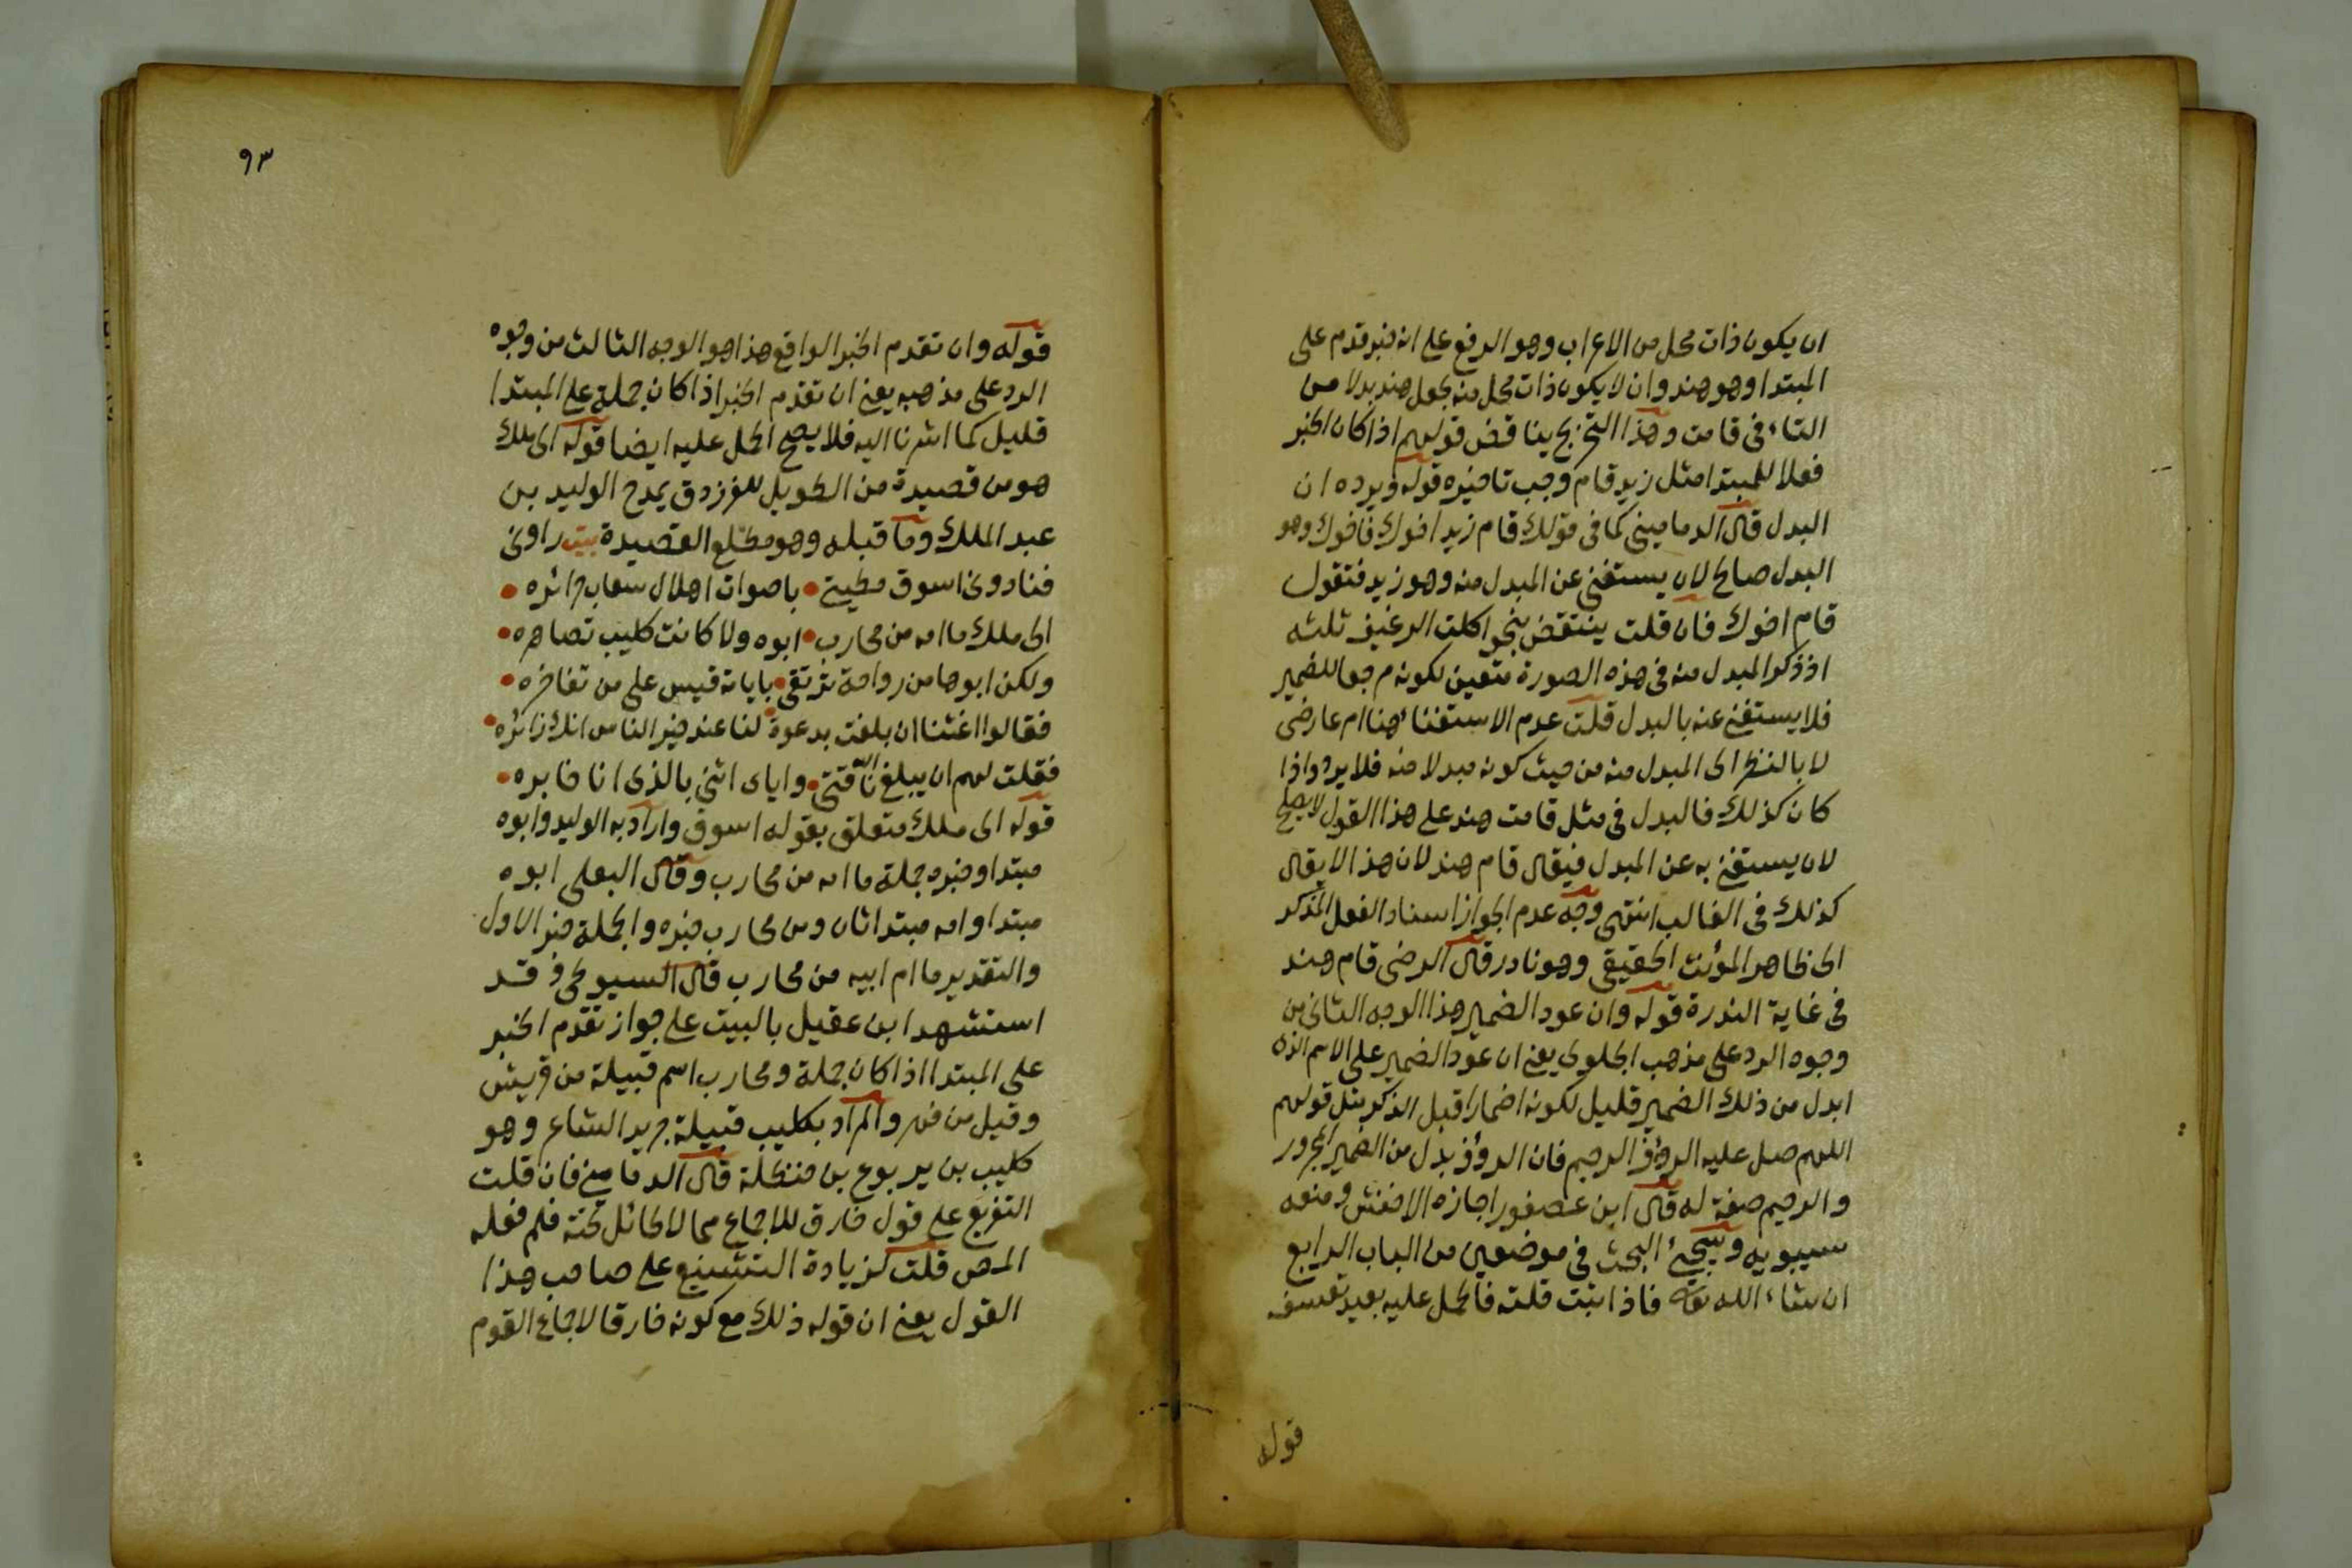 ان يكون ذات محل من الاعراب وهو الرفع على انه خبر قدم على
المبتدا وهو هند وان لا يكون ذات محل منه بجعل هند بدلا من
التاء في قامت وهذا التخريج يناقض قولهم اذا كان الخبر
فعلا للمبتدا مثل زيد قام وجب تاخيره قوله ويرده ان
البدل قال الدماميني كما في قولك قام زيد اخوك فاخوك وهو
البدل صالح لان يستغني عن المبدل منه وهو زيد فتقول
قام اخوك فان قلت ينتقض بنحو اكلت الرغيف ثلثه
اذ ذكر المبدل منه في هذه الصورة متعين لكونه مرجعا للضمير
فلا يستغني عنه بالبدل قلت عدم الاستغناء هنا امر عارضي
لا بالنظر الى المبدل منه من حيث كونه مبدلا منه فلا يرد واذا
كان كذلك فالبدل في مثل قامت هند على هذا القول لا يصلح
لان يستغني به عن المبدل فيقال قام هند لان هذا لا يقال
كذلك في الغالب انتهى وجه عدم الجواز اسناد الفعل المذكر
الى ظاهر المؤنث الحقيقي وهو نادر قال الرضي قام هند
في غاية الندرة قوله وان عود الضمير هذا الوجه الثاني من
وجوه الرد على مذهب الجلولي يعني ان عود الضمير على الاسم الذي
ابدل من ذلك الضمير قليل لكونه اضمارا قبل الذكر مثل قولهم
اللهم صل عليه الرؤف الرحيم فان الرؤف بدل من الضمير المجرور
والرحيم صفة له قال ابن عصفور اجازه الاخفش ومنعه
سيبويه وسيجئ البحث في موضعين من الباب الرابع
ان شاء الله تعالى فاذا ثبت قلته فالحمل عليه بعيد تعسف
قوله
٩٣
قوله وان تقدم الخبر الواقع هذا هو الوجه الثالث من وجوه
الرد على مذهبه يعني ان تقدم الخبر اذا كان جملة على المبتدا
قليل كما اشرنا اليه فلا يصح الحمل عليه ايضا قوله الى ملك
هو من قصيدة من الطويل للفرزدق يمدح الوليد بن
عبد الملك وما قبله وهو مطلع القصيدة بيت راوني
فنادوني اسوق مطيتي باصوات اهلال سغاب جرائره
الى ملك ما امه من محارب ابوه ولا كانت كليب تصاهره
ولكن ابوها من رواحة ترتقي بايامه قيس على من تفاخره
فقالوا اغثنا ان بلغت بدعوة لنا عند خير الناس انك زائره
فقلت لهم ان يبلغ الله ناقتي واياي اثني بالذي انا خابره
قوله الى ملك متعلق بقوله اسوق واراد به الوليد وابوه
مبتدا وخبره جملة ما امه من محارب وقال البعلي ابوه
مبتدا وامه مبتدا ثان ومن محارب خبره والجملة خبر الاول
والتقدير ما ام ابيه من محارب قال السيوطي وقد
استشهد ابن عقيل بالبيت على جواز تقدم الخبر
على المبتدا اذا كان جملة ومحارب اسم قبيلة من قريش
وقيل من فهر والمراد بكليب قبيلة جرير الشاعر وهو
كليب بن يربوع بن حنظلة قال الدماميني فان قلت
التفريع على قول خارق للاجماع مما لا طائل تحته فلم فعله
المص قلت لزيادة التشنيع على صاحب هذا
القول يعني ان قوله ذلك مع كونه خارقا لاجماع القوم